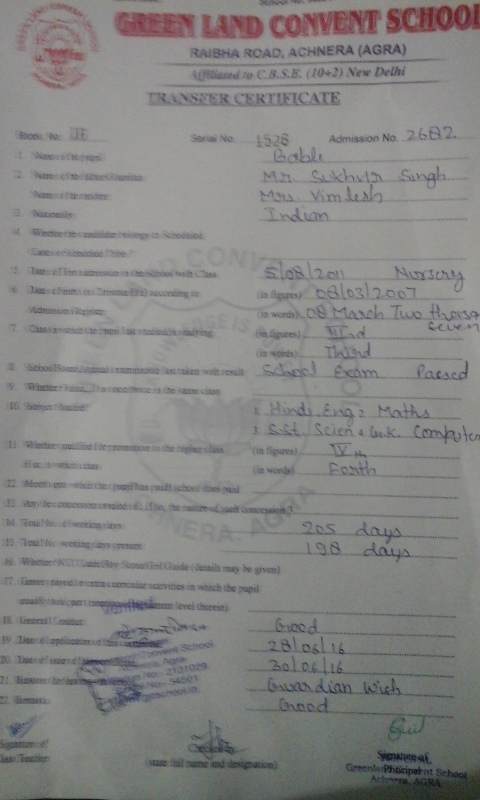 GREEN LAND CONVENT SCHOOL
RAIBHA ROAD, ACHNERA (AGRA)
Affiliated to C.B.S.E. (10+2) New Delhi
TRANSFER CERTIFICATE
Book No. Serial No. 1526 Admission No. 2682
1. Name of the pupil
2. Name of the Father/Guardian Mr. Sukhvir Singh
Name of the mother Mrs. Vimlesh
3. Nationality Indian
4. Whether the candidate belongs to Scheduled
Caste or Scheduled Tribe?
5. Date of first admission in the School with Class 5/08/2011 Nursery
6. Date of birth (in Christian Era) according to (in figures) 08/03/2007
Admission Register (in words) 08 March Two thousa
Seven
7. Class in which the pupil last (in figures) IIIrd
(in words) Third
8. School/Board Annual examination last taken with result School Exam Passed
9. Whether failed, in the same class
10. Subject Studied 1. Hindi Eng 2 Maths
S.St. Scien G.K. Computer
11. Whether qualified for promotion to the higher class (in figures) IVth
(in words) Forth
12. Month upto which the pupil has paid school dues paid
13. Any fee concession if so, the nature of such concession?
14. Total No. of working days 205 days
15. Total No. working days present 198 days
16. Whether NCC Cadet/Boy Scout/Girl Guide (details may be given)
17. Games played or extra curricular activities in which the pupil
usually took part level therein)
18. General Conduct Good
19. Date of application 28/06/16
20. Date of issue 30/06/16
21. Guardian Wish
22. Good
Signature of
Class Teacher
(state full name and designation)
Signature of
Principal
Greenland Convent School
Achnera, AGRA